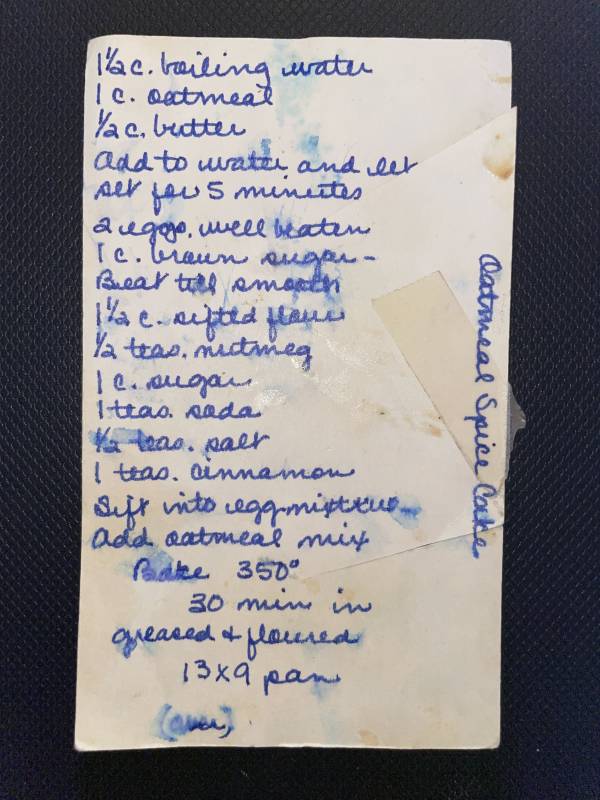 1 1/2 c. boiling water
1 c. oatmeal
1/2 c. butter
Add to water and let
set for 5 minutes
2 eggs, well beaten
1 c. brown sugar -
Beat till smooth
1 1/2 c. sifted flour
1/2 teas. nutmeg
1 c. sugar
1 teas. soda
1/2 teas. salt
1 teas. cinnamon
Sift into egg mixture -
Add oatmeal mix
Bake 350°
30 min in
greased & floured
13x9 pan
(over)
Oatmeal Spice Cake